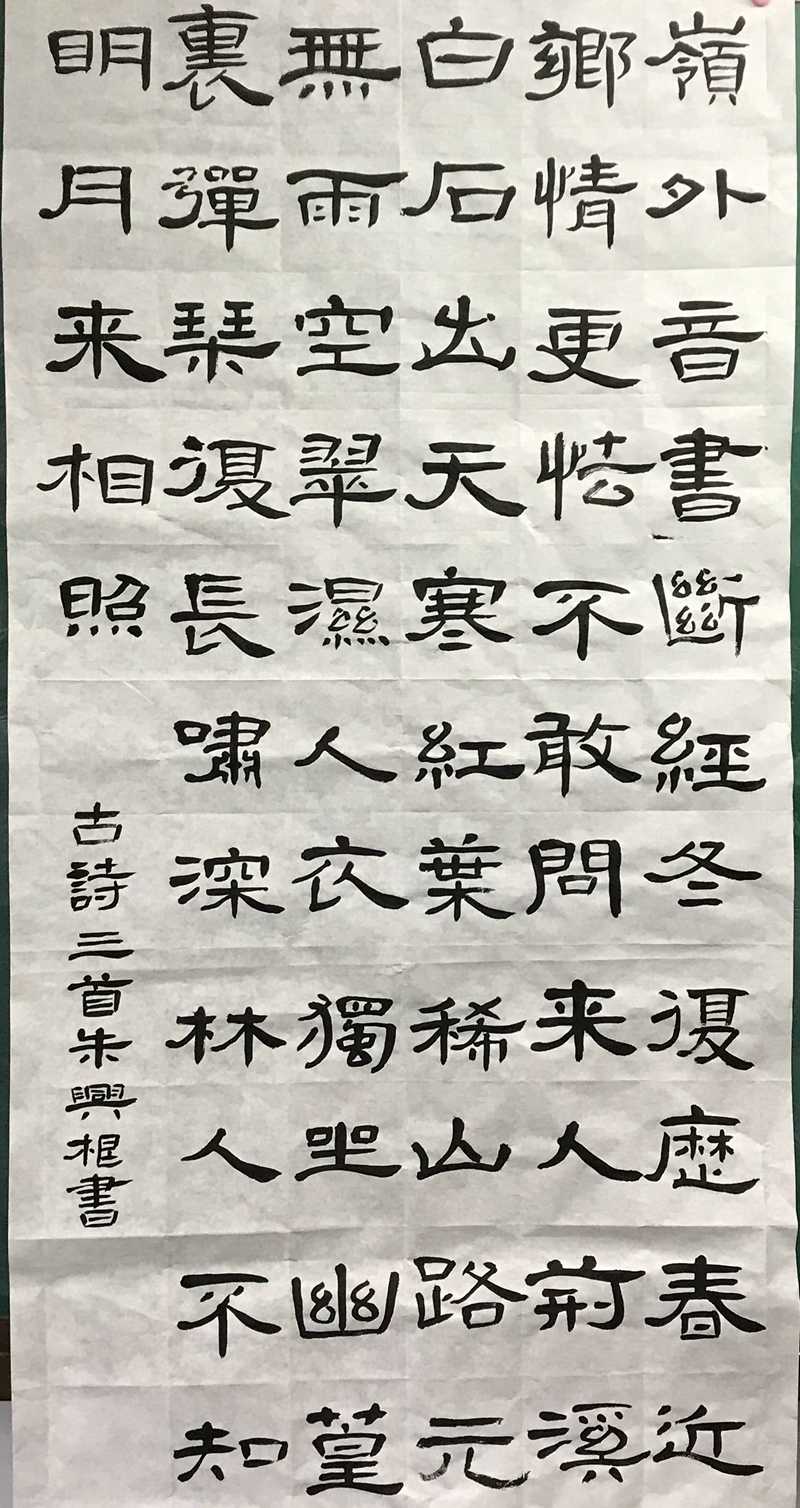 嶺外音書斷經冬復歷春近
鄉情更怯不敢問来人荊溪
白石出天寒紅葉稀山路元
無雨空翠濕人衣獨坐幽篁
裏彈琴復長嘯深林人不知
明月来相照
古詩三首朱興根書